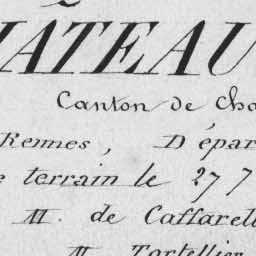 HÂTEAU
Canton de Cha
Rennes, Dépar
e terrain le 27 7
M. de Caffarell
M. Tortellier